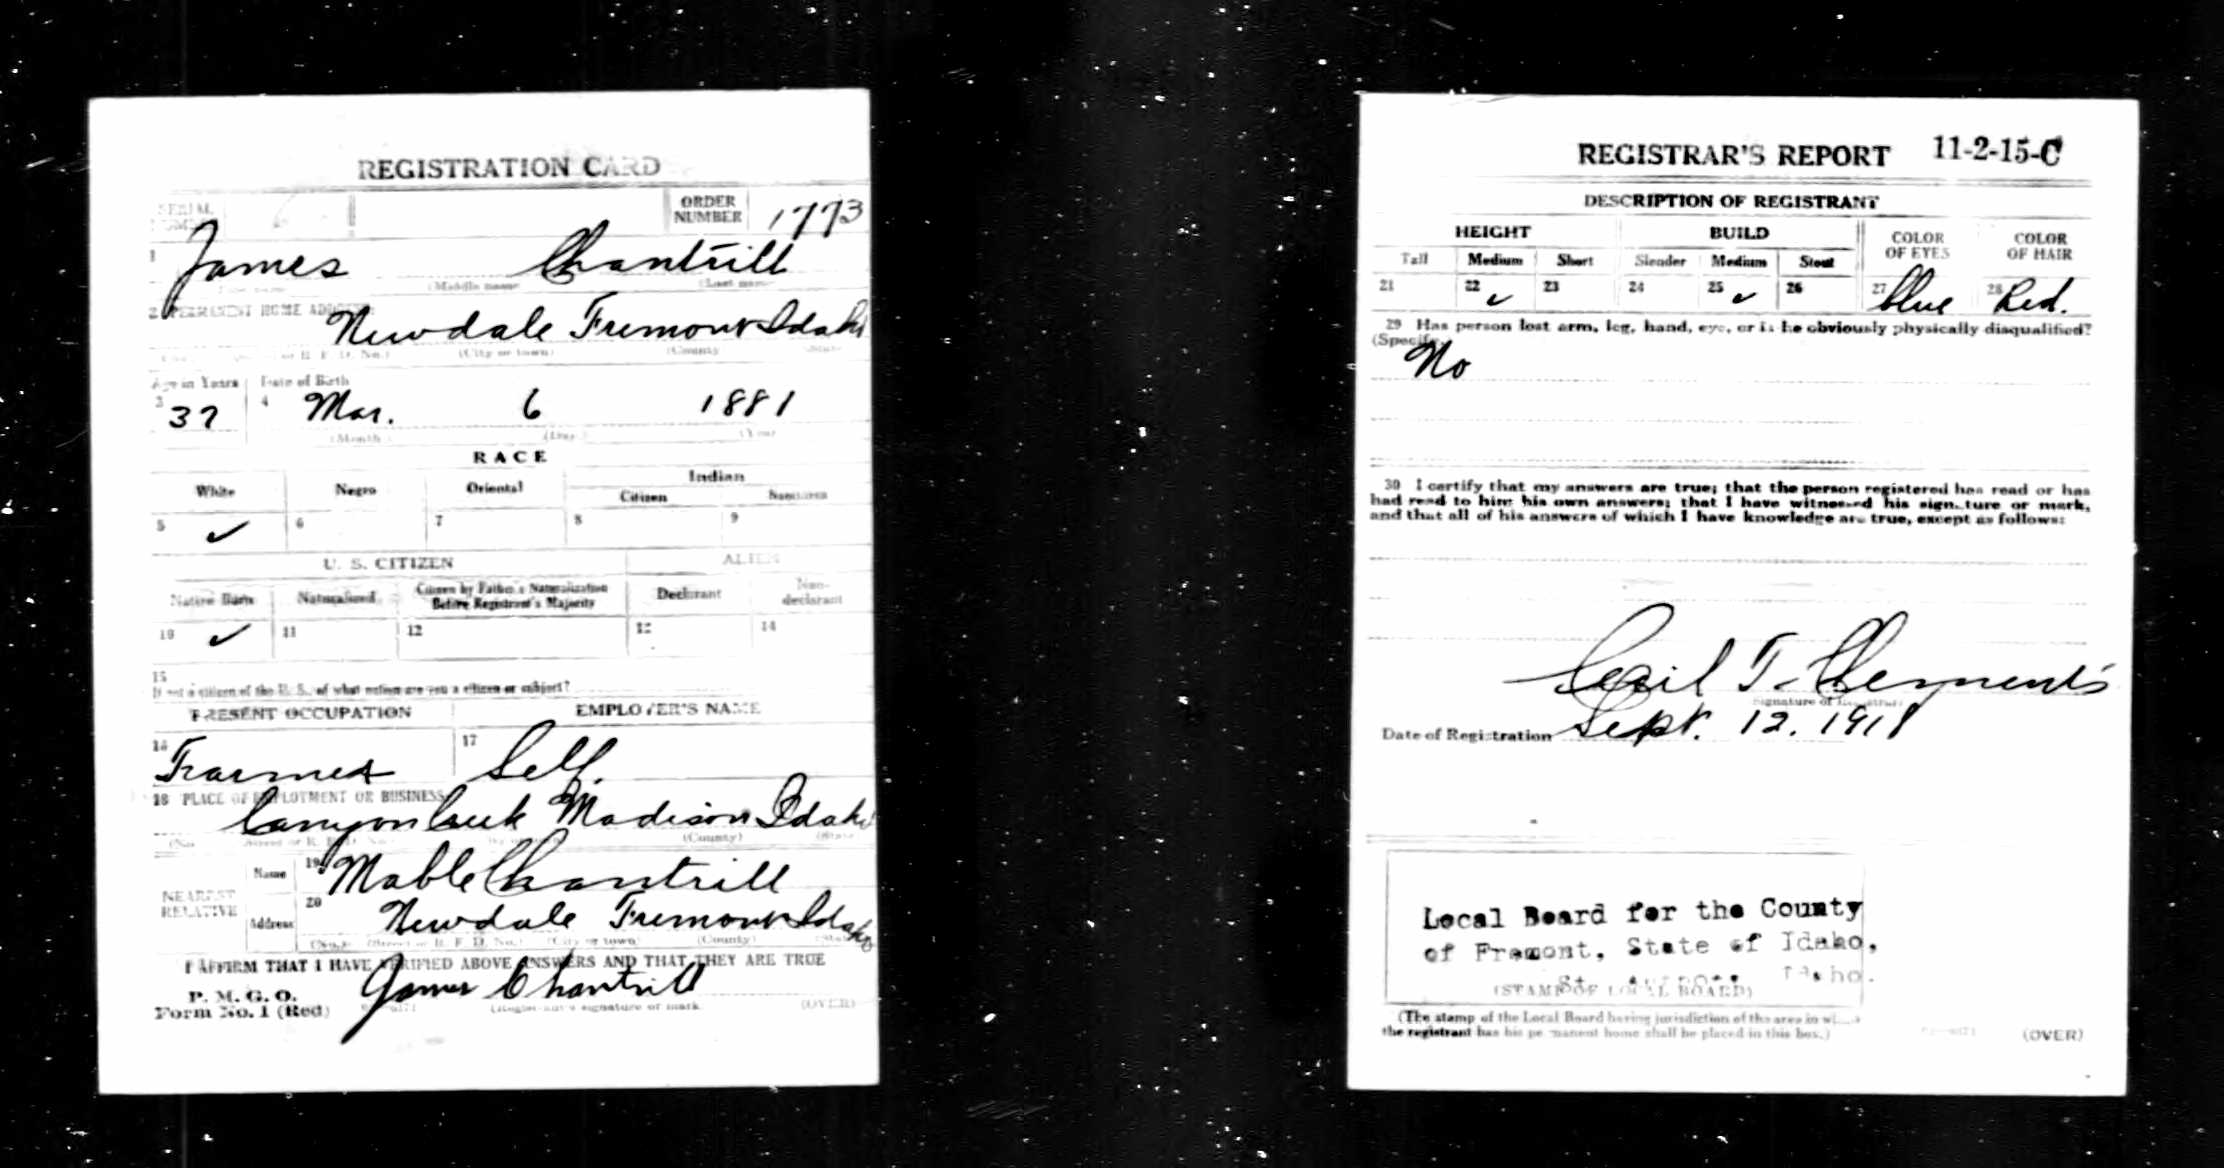 REGISTRATION CARD
SERIAL ORDER
NUMBER 1773
1 James Chantrill
(Middle name) (Last name)
2 PERMANENT HOME ADDRESS:
Newdale Fremont Idaho
or R. F. D. No.) (City or town) (County) State
Age in Years Date of Birth
3 37 4 Mar. 6 1881
(Month) (Day) (Year
RACE
White Negro Oriental Indian
Citizen Noncitizen
5 ✓ 6 7 8 9
U. S. CITIZEN ALIEN
Native Born Naturalized Citizen by Father's Naturalization Before Registrant's Majority Declarant Non-declarant
10 ✓ 11 12 13 14
15
If not a citizen of the U. S., of what nation are you a citizen or subject?
PRESENT OCCUPATION EMPLOYER'S NAME
16 Farmer 17 Self.
18 PLACE OF EMPLOYMENT OR BUSINESS
Canyon Creek Madison Idaho
(No. Street or R. F. D. No. (County) (State
NEAREST RELATIVE
Name 19 Mable Chantrill
Address 20 Newdale Fremont Idaho
(No.) (Street or R. F. D. No.) (City or town) (County) (State
I AFFIRM THAT I HAVE VERIFIED ABOVE ANSWERS AND THAT THEY ARE TRUE
P. M. G. O.
Form No. 1 (Red) James Chantrill
(Registrant's signature or mark (OVER)
REGISTRAR'S REPORT 11-2-15-C
DESCRIPTION OF REGISTRANT
HEIGHT BUILD COLOR OF EYES COLOR OF HAIR
Tall Medium Short Slender Medium Stout
21 22 ✓ 23 24 25 ✓ 26 27 Blue 28 Red.
29 Has person lost arm, leg, hand, eye, or is he obviously physically disqualified?
(Specify.
No
30 I certify that my answers are true; that the person registered has read or has
had read to him his own answers; that I have witnessed his signature or mark,
and that all of his answers of which I have knowledge are true, except as follows:
Cecil T. Clements
Signature of Registrar
Date of Registration Sept. 12. 1918
Local Board for the County
of Fremont, State of Idaho,
St. Anthony, Idaho.
(STAMP OF LOCAL BOARD)
(The stamp of the Local Board having jurisdiction of the area in which
the registrant has his permanent home shall be placed in this box.)
(OVER)